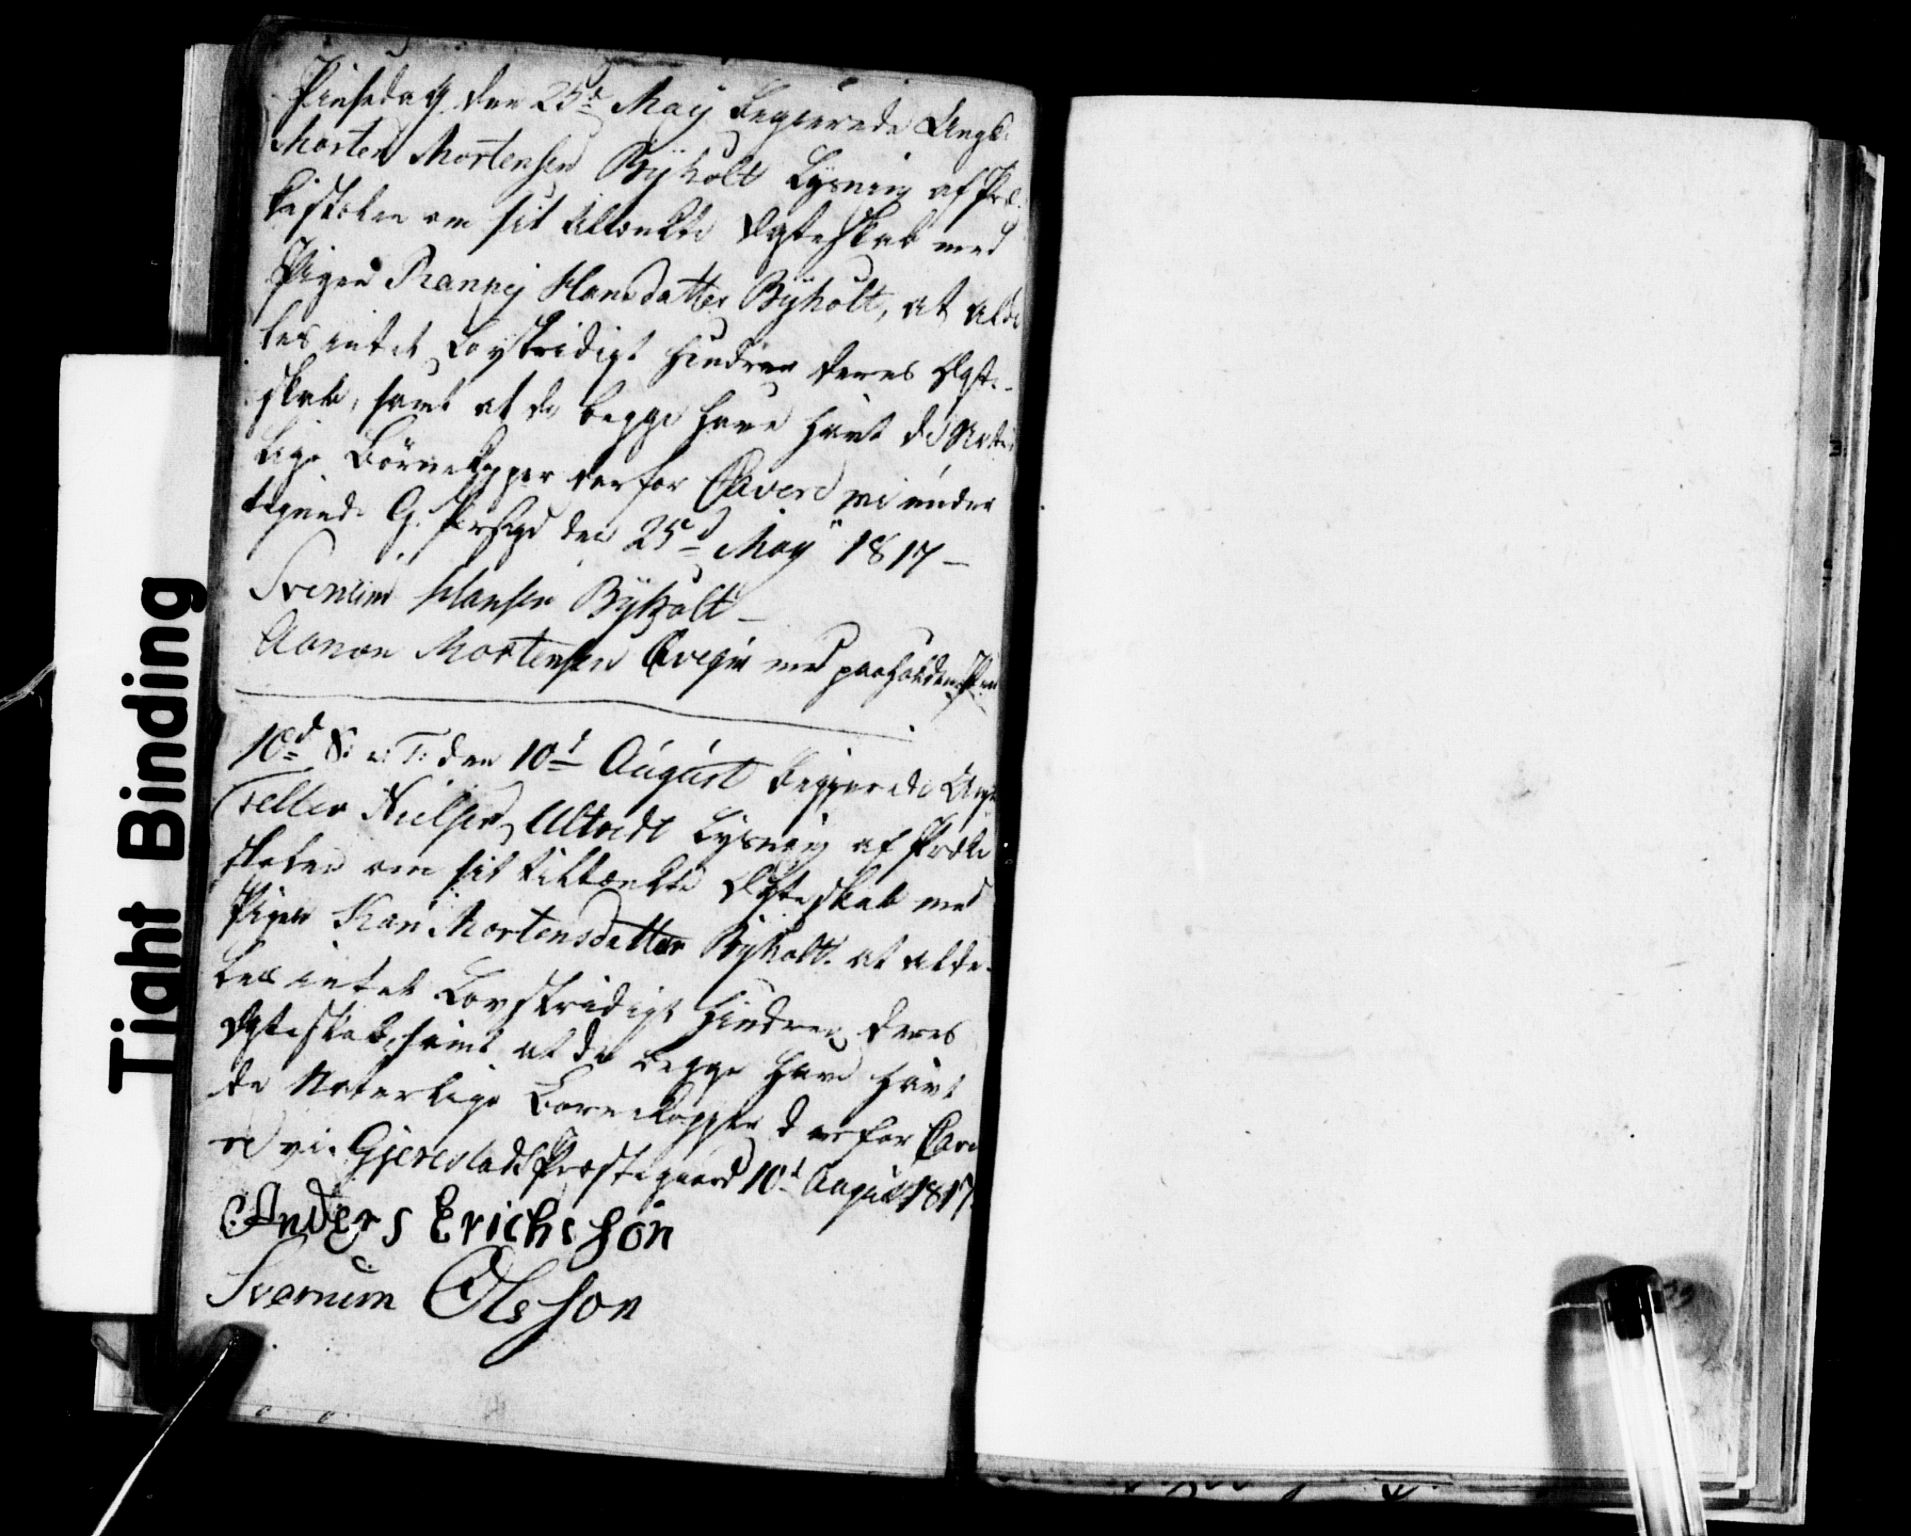 Pinsedag den 25d May begierede Ungk:
Morten Mortensen Byholt Lysning af Præ-
kestolen om sit tiltænkte Ægteskab med
Pigen Rannej Hansdatter Byholt, at alde
les intet Lovstridigt hindrer deres Ægte-
skab, samt at de begge have havt de Natur
lige Börnekopper derfor Cavere vi under
tegnede G. Præstgd den 25d May 1817 –
Svenum Hansen Byholt –
Aanon Mortensen med paaholden Pen
Tight Binding
10d S: e: T: den 10d August begjerede Ungk
Tellev Nielsen Lysning af Præke
stolen om sit tiltænkte Ægteskab med
Pigen Kari Mortensdatter Byholt at alde-
les intet Lovstridigt hindrer deres
Ægteskab, samt at de begge have havt
de Naturlige Bornekopper derfor Cave
re vi. Gjerestads Præstegaard 10d August 1817
Anders Erichsson
Svenum Olsson